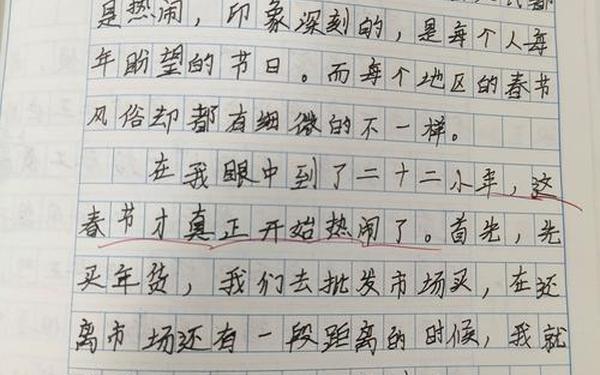 是热闹，印象深刻的，是每个人每
年盼望的节日。而每个地区的春节
风俗却都有细微的不一样。
在我眼中到了二十二小年，这
春节才真正开始热闹了。首先，先
买年货，我们去批发市场买，在还
离市场还有一段距离的时候，我就